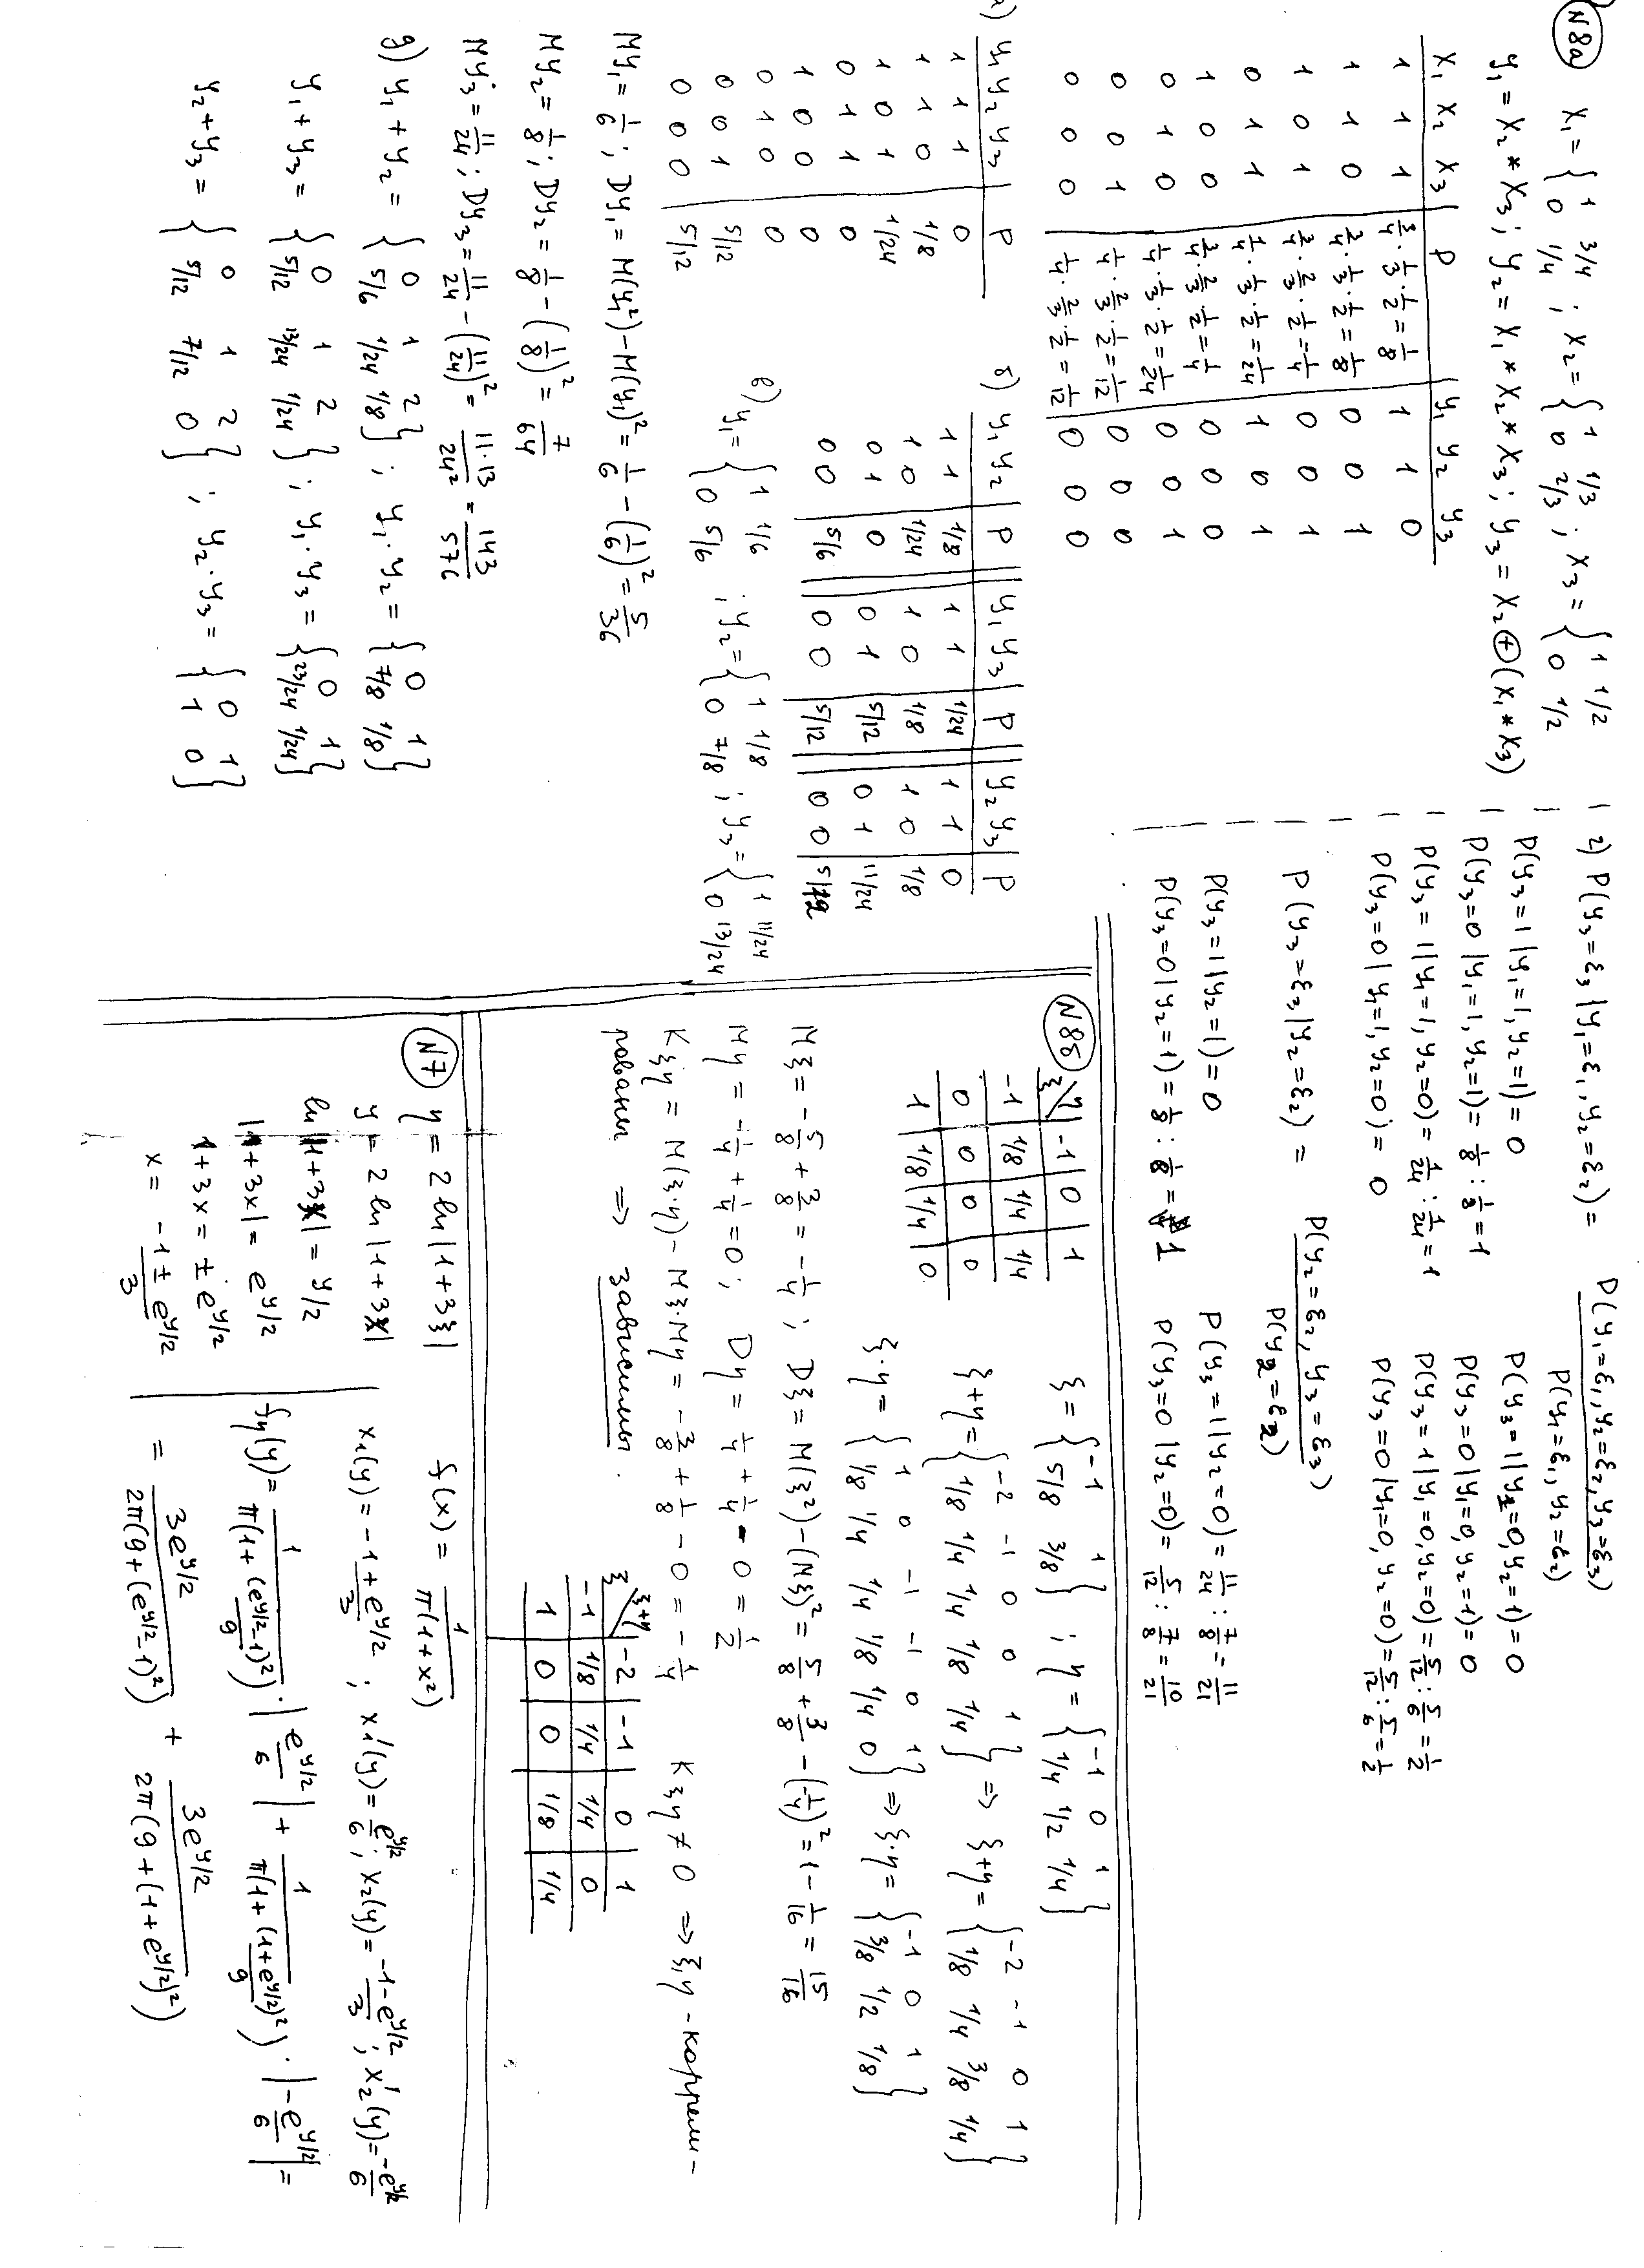 N8а
X₁ = { 1 3/4 ; 0 1/4 ; X₂ = { 1 1/3 ; 0 2/3 ; X₃ = { 1 1/2 ; 0 1/2
y₁ = X₂ * X₃ ; y₂ = X₁ * X₂ * X₃ ; y₃ = X₂ ⊕ (X₁ * X₃)
X₁ X₂ X₃ | P | y₁ y₂ y₃
1 1 1 | 3/4 · 1/3 · 1/2 = 1/8 | 1 1 0
1 1 0 | 3/4 · 1/3 · 1/2 = 1/8 | 0 0 1
1 0 1 | 3/4 · 2/3 · 1/2 = 1/4 | 0 0 1
0 1 1 | 1/4 · 1/3 · 1/2 = 1/24 | 1 0 1
1 0 0 | 3/4 · 2/3 · 1/2 = 1/4 | 0 0 0
0 1 0 | 1/4 · 1/3 · 1/2 = 1/24 | 0 0 1
0 0 1 | 1/4 · 2/3 · 1/2 = 1/12 | 0 0 0
0 0 0 | 1/4 · 2/3 · 1/2 = 1/12 | 0 0 0
а) y₁ y₂ y₃ | P
1 1 1 | 0
1 1 0 | 1/8
1 0 1 | 1/24
0 1 1 | 0
1 0 0 | 0
0 1 0 | 0
0 0 1 | 5/12
0 0 0 | 5/12
б) y₁ y₂ | P || y₁ y₃ | P || y₂ y₃ | P
1 1 | 1/8 || 1 1 | 1/24 || 1 1 | 0
1 0 | 1/24 || 1 0 | 1/8 || 1 0 | 1/8
0 1 | 0 || 0 1 | 5/12 || 0 1 | 11/24
0 0 | 5/6 || 0 0 | 5/12 || 0 0 | 5/12
в) y₁ = { 1 1/6 ; 0 5/6 ; y₂ = { 1 1/8 ; 0 7/8 ; y₃ = { 1 11/24 ; 0 13/24
My₁ = 1/6 ; Dy₁ = M(y₁²) - M(y₁)² = 1/6 - (1/6)² = 5/36
My₂ = 1/8 ; Dy₂ = 1/8 - (1/8)² = 7/64
My₃ = 11/24 ; Dy₃ = 11/24 - (11/24)² = 11·13/24² = 143/576
g) y₁ + y₂ = { 0 1 2 ; 5/6 1/24 1/8 } ; y₁ · y₂ = { 0 1 ; 7/8 1/8 }
y₁ + y₃ = { 0 1 2 ; 5/12 13/24 1/24 } ; y₁ · y₃ = { 0 1 ; 23/24 1/24 }
y₂ + y₃ = { 0 1 2 ; 5/12 7/12 0 } ; y₂ · y₃ = { 0 1 ; 1 0 }
г) P(y₃ = ε₃ | y₁ = ε₁, y₂ = ε₂) = P(y₁ = ε₁, y₂ = ε₂, y₃ = ε₃) / P(y₁ = ε₁, y₂ = ε₂)
P(y₃ = 1 | y₁ = 1, y₂ = 1) = 0 P(y₃ = 1 | y₁ = 0, y₂ = 1) = 0
P(y₃ = 0 | y₁ = 1, y₂ = 1) = 1/8 : 1/8 = 1 P(y₃ = 0 | y₁ = 0, y₂ = 1) = 0
P(y₃ = 1 | y₁ = 1, y₂ = 0) = 1/24 : 1/24 = 1 P(y₃ = 1 | y₁ = 0, y₂ = 0) = 5/12 : 5/6 = 1/2
P(y₃ = 0 | y₁ = 1, y₂ = 0) = 0 P(y₃ = 0 | y₁ = 0, y₂ = 0) = 5/12 : 5/6 = 1/2
P(y₃ = ε₃ | y₂ = ε₂) = P(y₂ = ε₂, y₃ = ε₃) / P(y₂ = ε₂)
P(y₃ = 1 | y₂ = 1) = 0 P(y₃ = 1 | y₂ = 0) = 11/24 : 7/8 = 11/21
P(y₃ = 0 | y₂ = 1) = 1/8 : 1/8 = 1 P(y₃ = 0 | y₂ = 0) = 5/12 : 7/8 = 10/21
N8б
ξ \ η | -1 | 0 | 1
-1 | 1/8 | 1/4 | 1/4
0 | 0 | 0 | 0
1 | 1/8 | 1/4 | 0
ξ = { -1 1 ; 5/8 3/8 } ; η = { -1 0 1 ; 1/4 1/2 1/4 }
ξ+η = { -2 -1 0 0 1 ; 1/8 1/4 1/4 1/8 1/4 } ⇒ ξ+η = { -2 -1 0 1 ; 1/8 1/4 3/8 1/4 }
ξ·η = { 1 0 -1 -1 0 1 ; 1/8 1/4 1/4 1/8 1/4 0 } ⇒ ξ·η = { -1 0 1 ; 3/8 1/2 1/8 }
Mξ = -5/8 + 3/8 = -1/4 ; Dξ = M(ξ²) - (Mξ)² = 5/8 + 3/8 - (-1/4)² = 1 - 1/16 = 15/16
Mη = -1/4 + 1/4 = 0 ; Dη = 1/4 + 1/4 - 0 = 1/2
Kξη = M(ξ·η) - Mξ·Mη = -3/8 + 1/8 - 0 = -1/4 Kξη ≠ 0 ⇒ ξ,η - коррели-
рованы ⇒ зависимы.
ξ \ ξ+η | -2 | -1 | 0 | 1
-1 | 1/8 | 1/4 | 1/4 | 0
1 | 0 | 0 | 1/8 | 1/4
N7
η = 2 ln |1+3ξ| f(x) = 1/(π(1+x²))
y = 2 ln |1+3x|
ln |1+3x| = y/2
|1+3x| = e^(y/2)
1+3x = ± e^(y/2)
x = (-1 ± e^(y/2))/3
x₁(y) = (-1+e^(y/2))/3 ; x₁'(y) = e^(y/2)/6 ; x₂(y) = (-1-e^(y/2))/3 ; x₂'(y) = -e^(y/2)/6
fη(y) = 1/(π(1+(e^(y/2)-1)²/9)) · |e^(y/2)/6| + 1/(π(1+(1+e^(y/2))²/9)) · |-e^(y/2)/6| =
= 3e^(y/2)/(2π(9+(e^(y/2)-1)²)) + 3e^(y/2)/(2π(9+(1+e^(y/2))²))